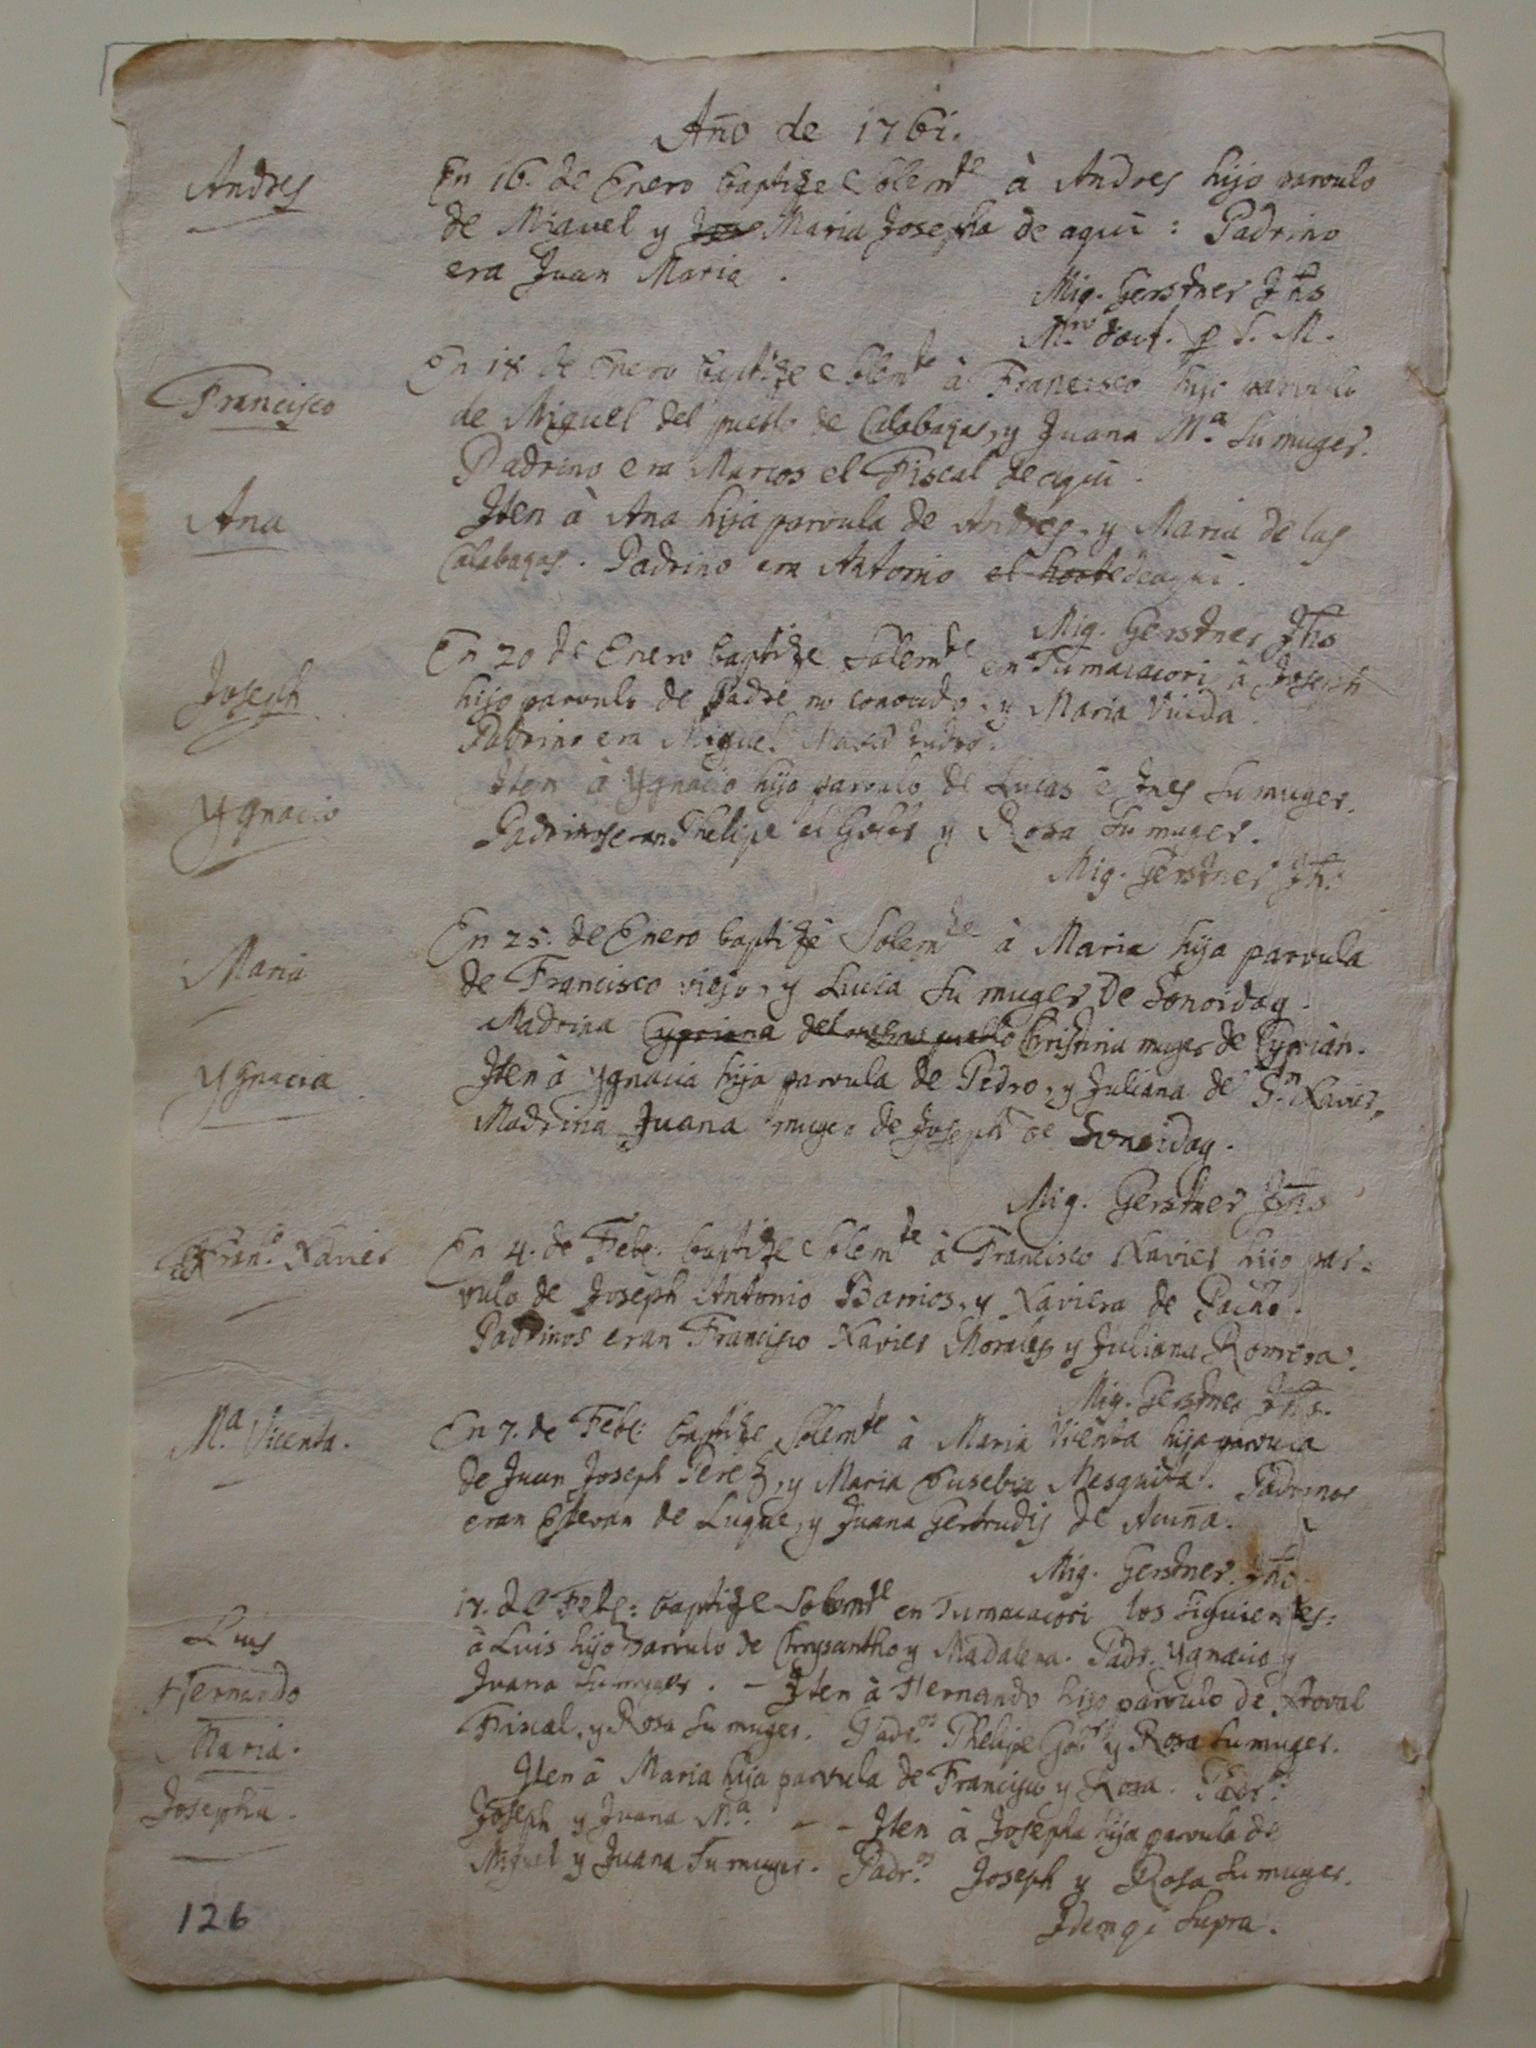 Año de 1761.
Andres
En 16. de Enero baptize Solemte à Andres hijo parvulo
de Miguel y Jos Maria Josepha de aqui : Padrino
era Juan Maria .
Mig. Gerstner Jhs
Mro doct. p S. M.
Francisco
En 18 de Enero baptize Solemte à Francisco hijo parvulo
de Miguel del pueblo de Calabazas, y Juana Ma. su muger.
Padrino era Marcos el Fiscal de aqui .
Ana
Iten à Ana hija parvula de Andres, y Maria de las
Calabazas . Padrino era Antonio el de aqui .
Mig. Gerstner Jhs
Joseph
En 20 de Enero baptize Solemte en Tumacacori à Joseph
hijo parvulo de Padre no conocido, y Maria Viuda .
Padrino era Miguel
Ygnacio
Iten à Ygnacio hijo parvulo de Lucas è Ines su muger.
Padrinos eran Phelipe el Gobr y Rosa su muger.
Mig. Gerstner Jhs
Maria
En 25. de Enero baptizè Solemte à Maria hija parvula
de Francisco viejo, y Lucia su muger de Sonoidag .
Madrina Cypriana del mismo pueblo Christina muger de Cypriàn.
Ygnacia
Iten à Ygnacia hija parvula de Pedro, y Juliana de Sn. Xavier,
Madrina Juana muger de Joseph de Sonoidag .
Mig. Gerstner Jhs
Frano. Xavier
En 4. de Febr. baptize Solemte à Francisco Xavier hijo par-
vulo de Joseph Antonio Barrios, y Xaviera de
Padrinos eran Francisco Xavier Morales y Juliana Romera .
Mig. Gerstner Jhs.
Ma. Vicenta.
En 7. de Febr. baptize Solemte à Maria Vicenta hija parvula
de Juan Joseph Perez, y Maria Eusebia Mesquita . Padrinos
eran Estevan de Luque, y Juana Gertrudis de Acuña .
Mig. Gerstner. Jhs.
17. de Febr: baptize Solemte en Tumacacori los siguientes:
Luis
à Luis hijo parvulo de Chrysantho y Madalena. Padr. Ygnacio y
Juana su muger . - Iten à Hernando hijo parvulo de
Hernando
Fiscal, y Rosa su muger. Padr.os Phelipe Gor y Rosa su muger.
Maria .
Iten à Maria hija parvula de Francisco y Rosa . Padros.
Josepha .
Joseph y Juana Ma. - - Iten à Josepha hija parvula de
Miguel y Juana su muger . Padr.os Joseph y Rosa su muger.
126
Idem qi supra .